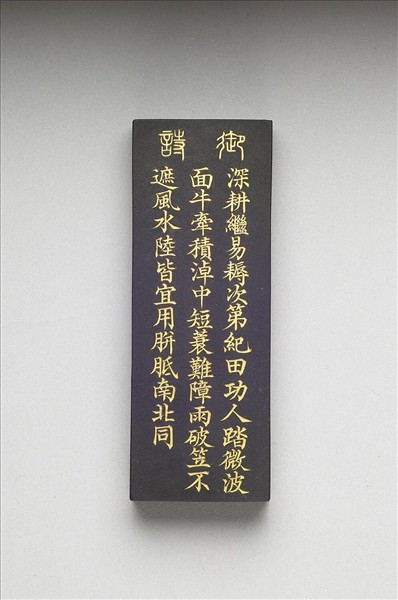 御詩
深耕繼易耨次第紀田功人踏微波
面牛牽積淖中短蓑難障雨破笠不
遮風水陸皆宜用胼胝南北同